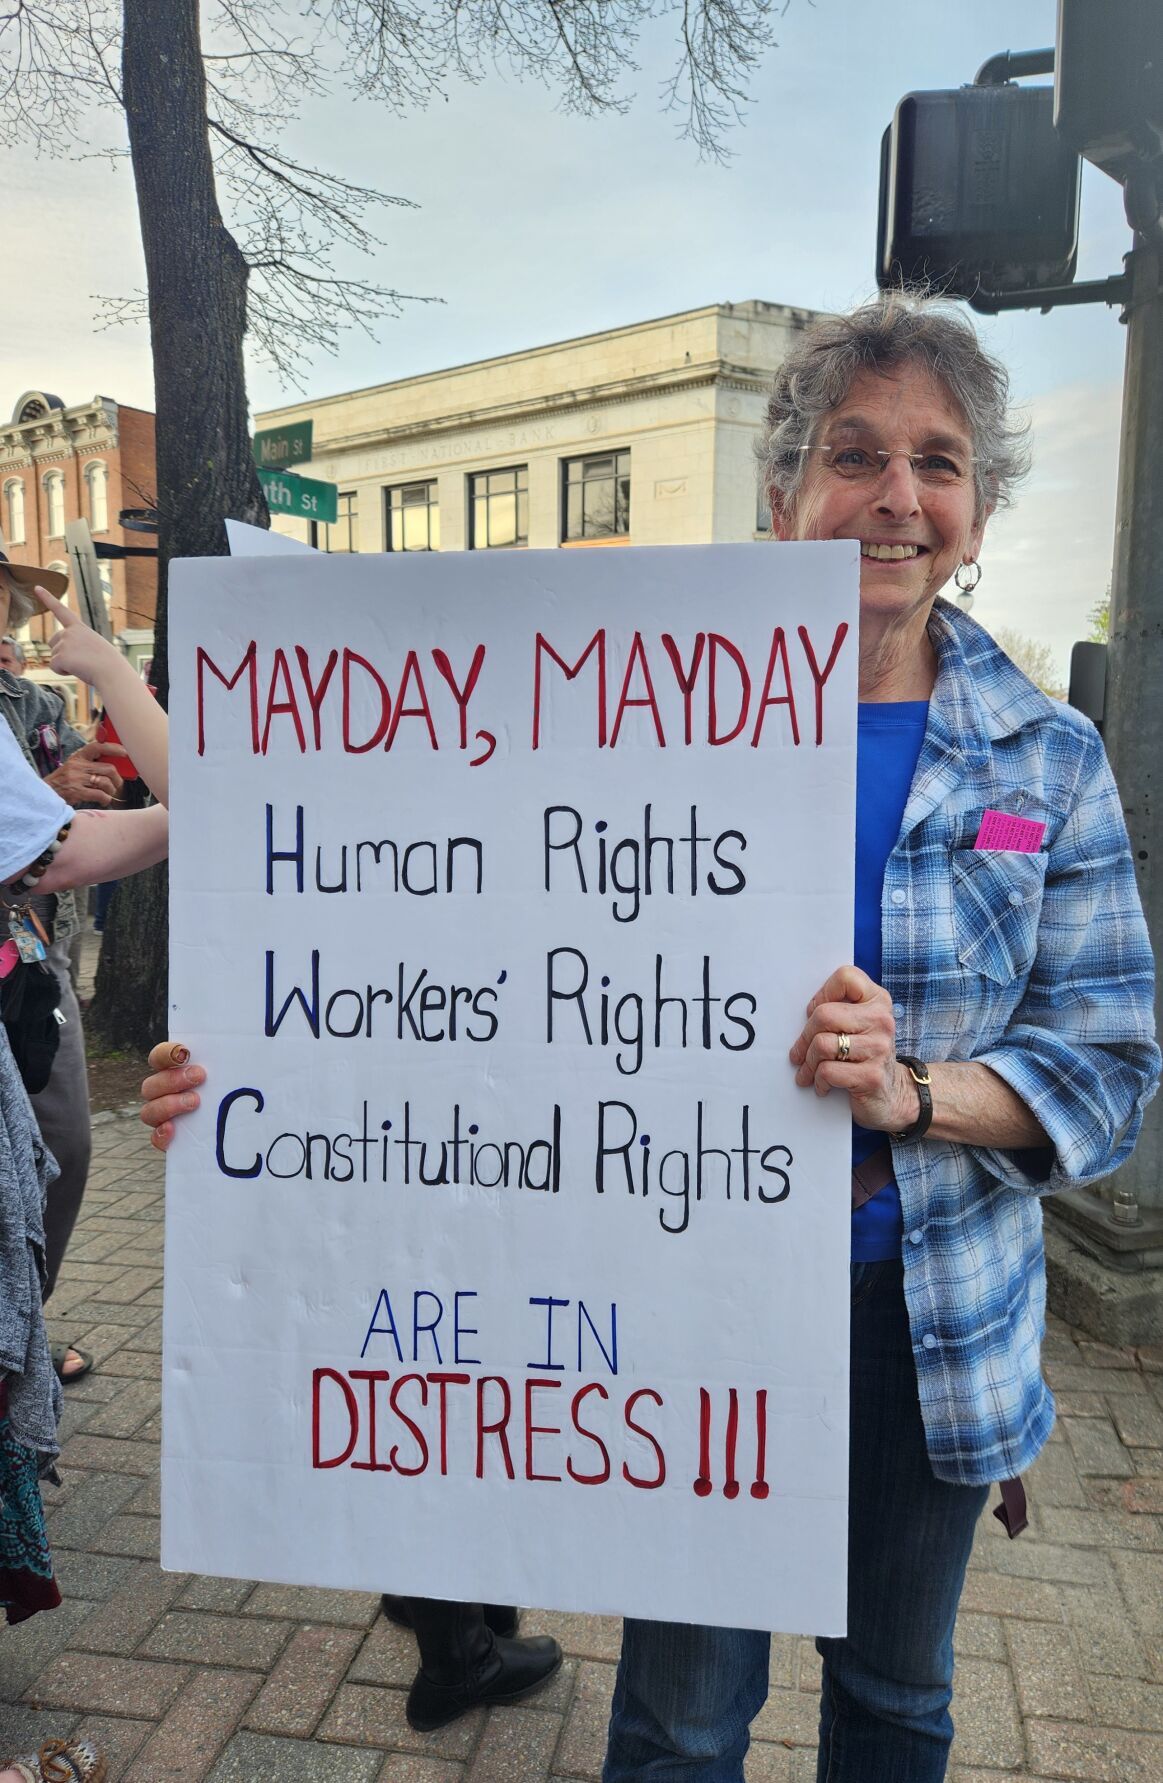 Main St
th St
FIRST · NATIONAL · BANK
MAYDAY, MAYDAY
Human Rights
Workers' Rights
Constitutional Rights
ARE IN
DISTRESS!!!